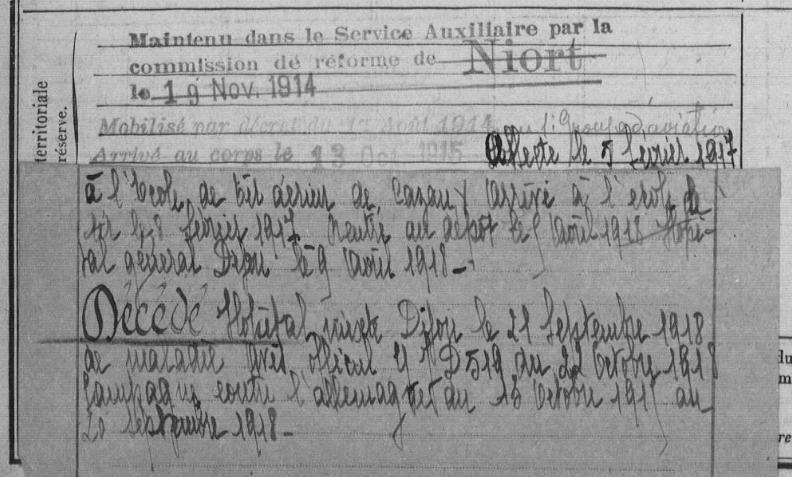 Maintenu dans le Service Auxiliaire par la
commission de réforme de Niort
le 19 Nov. 1914
Mobilisé par décret du Août 1914 d'aviation
Arrivé au corps le 13 Oct 1915 Affecté le 7 février 1917
territoriale
réserve.
à l'Ecole de tir aérien de Cazaux Arrivé à l'école de
tir le 8 février 1917 Rentré au dépôt le Août 1918 Hopi-
tal général Dijon le 9 Août 1918 -
Décédé Hôpital mixte Dijon le 21 Septembre 1918
de maladie avis officiel N° D 519 du 22 Octobre 1918
Campagne contre l'allemagne du 13 Octobre 1915 au
20 Septembre 1918 -